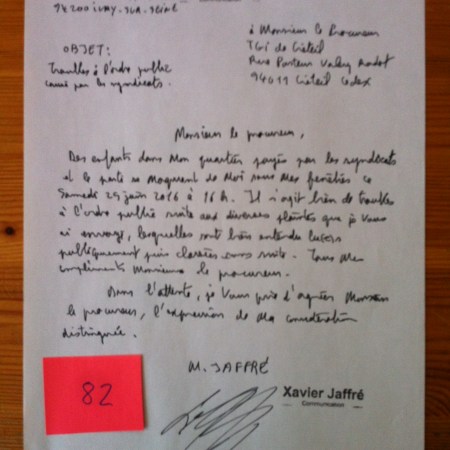 94200 IVRY-SUR-SEINE
à Monsieur le Procureur
TGI de Créteil
Rue Pasteur Valery Radot
94011 Créteil Cedex
OBJET:
Troubles à l'ordre public
causé par les syndicats.
Monsieur le procureur,
Des enfants dans mon quartier payés par les syndicats
et le se moquent de moi sous mes fenêtres ce
Samedi 25 juin 2016 à 16 h. Il s'agit bien de troubles
à l'ordre public suite aux diverses plaintes que je vous
ai envoyé, lesquelles sont bien entendu
publiquement puis classées sans suite. Tous mes
compliments Monsieur le procureur.
Dans l'attente, je vous prie d'agréer Monsieur
le procureur, l'expression de ma considération
distinguée.
M. JAFFRÉ
82
Xavier Jaffré
Communication